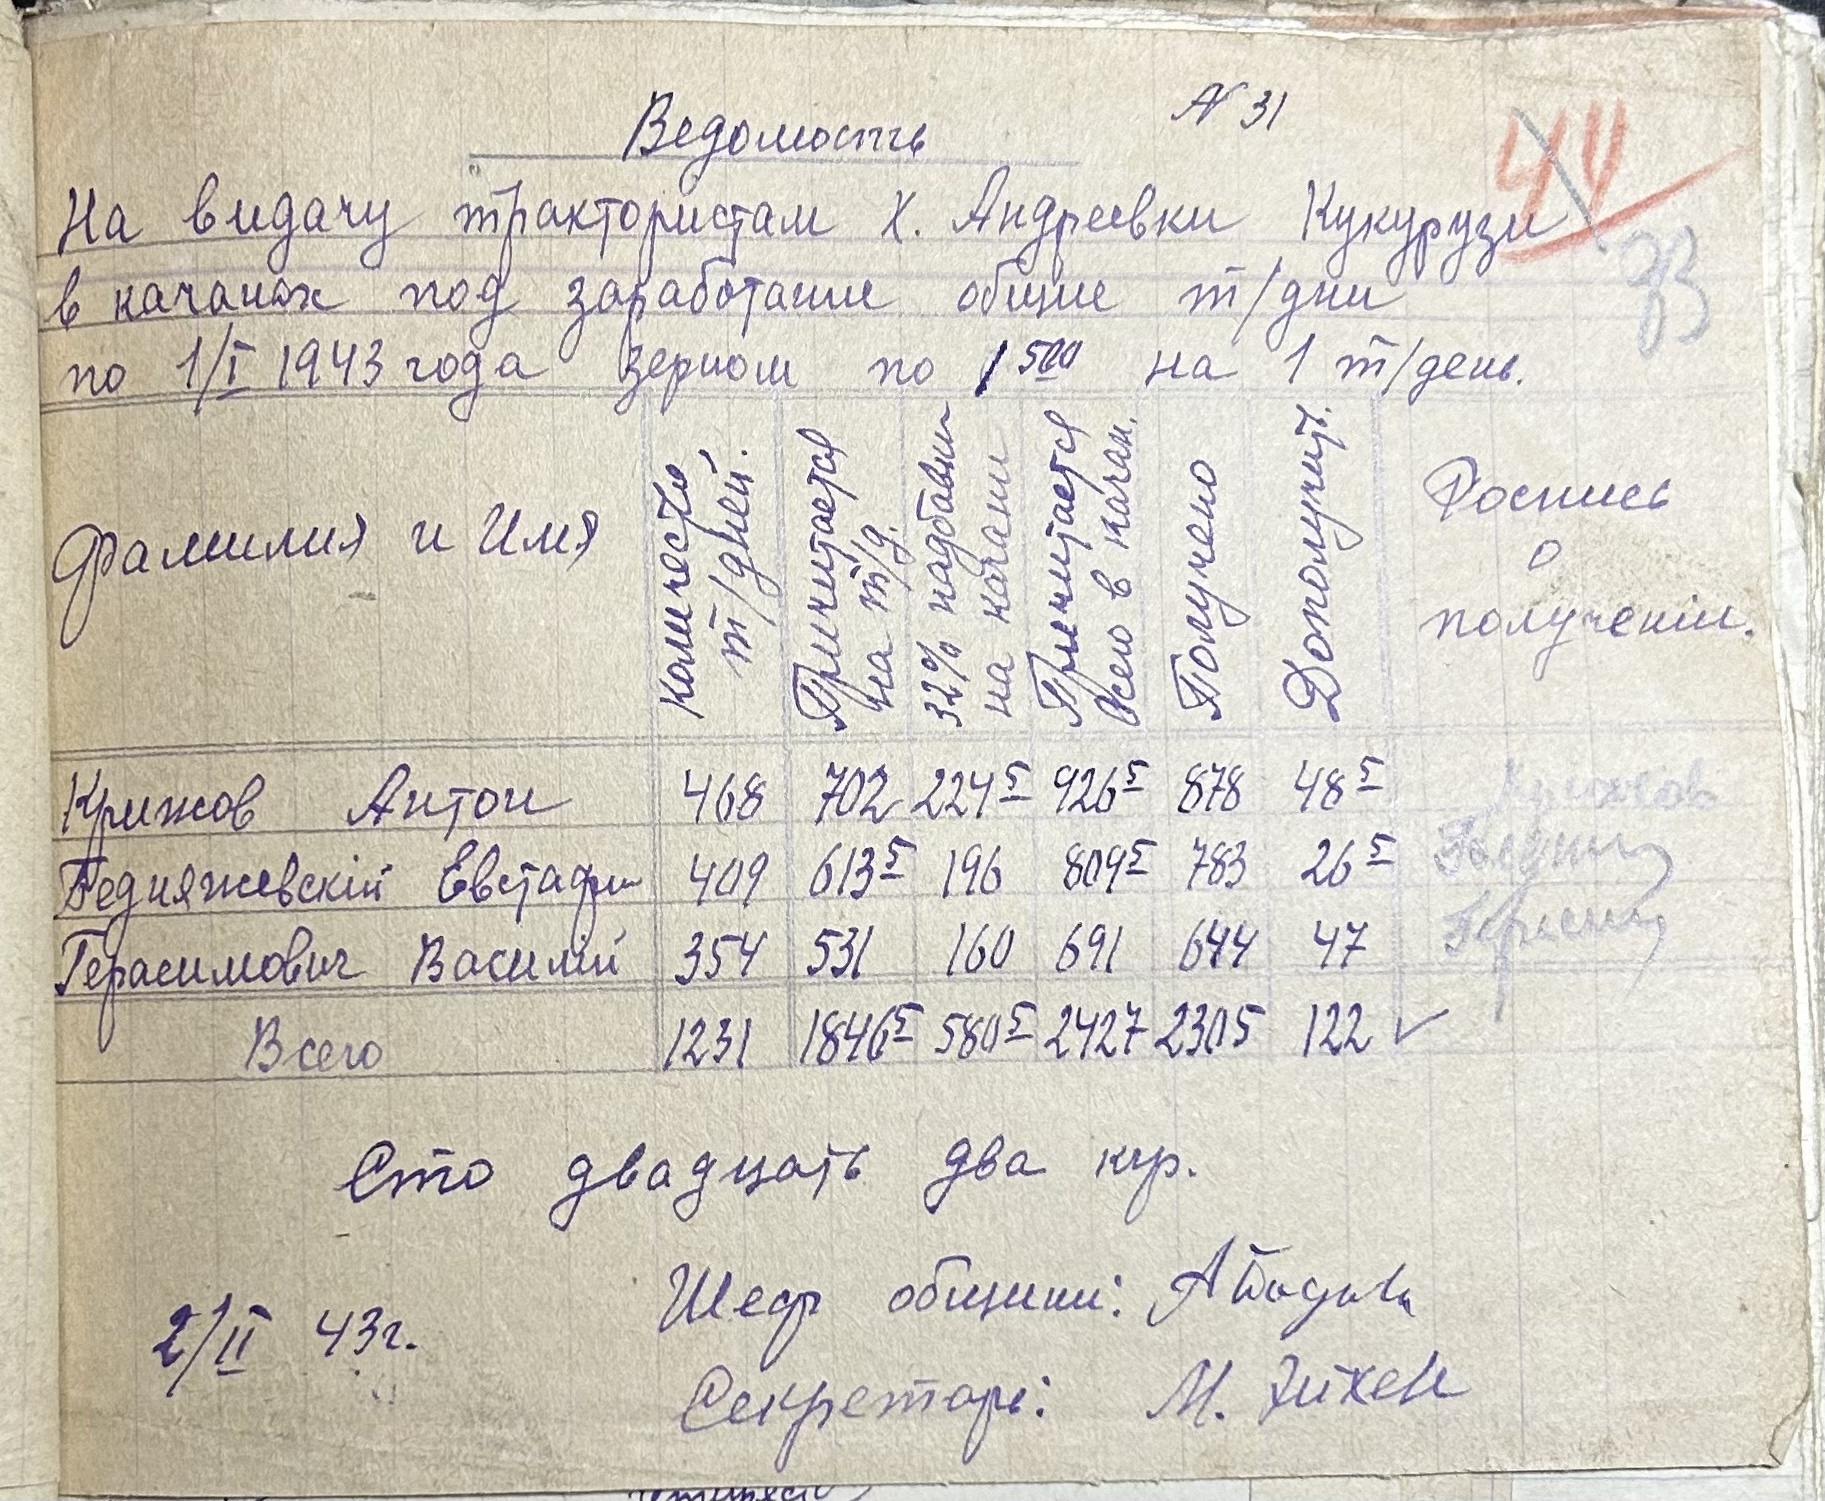 Ведомость № 31
44
33
На видачу трактористам Х. Андреевки Кукурузи
в качанах под заработание общие т/дни
по 1/I 1943 года зерном по 1 500 на 1 т/день.
Фамилия и Имя Количество т/дней. Причитается на т/д. 32% надбавки на качани Причитается всего в качан. Получено Дополучит. Роспись о получении.
Крижов Антон 468 702 224 5 926 5 878 48 5
Бедняжевскій Евстафи 409 613 5 196 809 5 783 26 5
Герасимович Василій 354 531 160 691 644 47
Всего 1231 1846 5 580 5 2427 2305 122 ✓
Сто двадцать два кгр.
Шеф общини:
2/II 43г.
Секретарь: М.